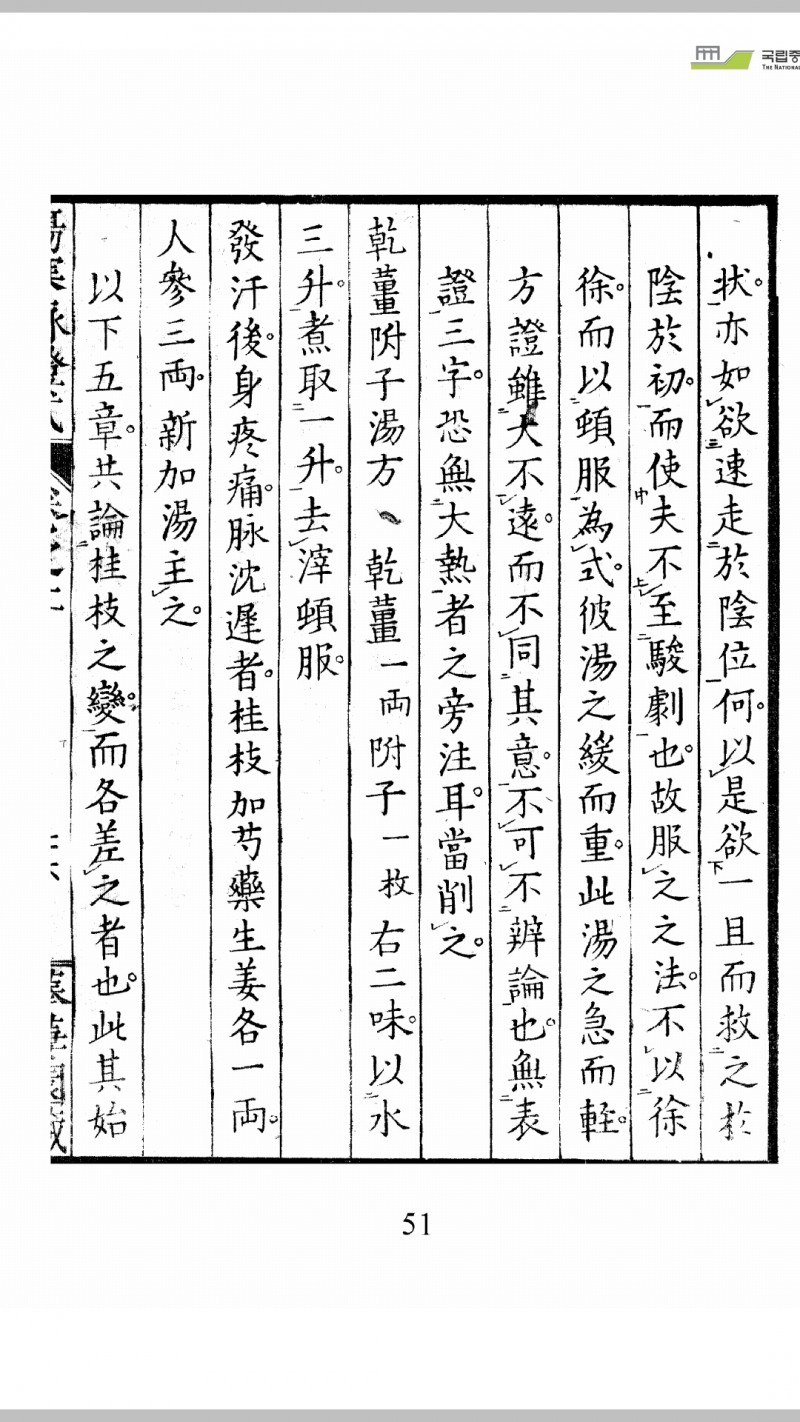 국립중
THE NATIONAL
狀亦如欲速走於陰位何以是欲一且而救之於
陰於初而使夫不至駿劇也故服之之法不以徐
徐而以頓服為式彼湯之緩而重此湯之急而輕
方證雖大不遠而不同其意不可不辨論也無表
證三字恐無大熱者之旁注耳當削之
乾薑附子湯方 乾薑一兩附子一枚右二味以水
三升煮取一升去滓頓服
發汗後身疼痛脉沈遲者桂枝加芍藥生姜各一兩
人參三兩新加湯主之
以下五章共論桂枝之變而各差之者也此其始
51